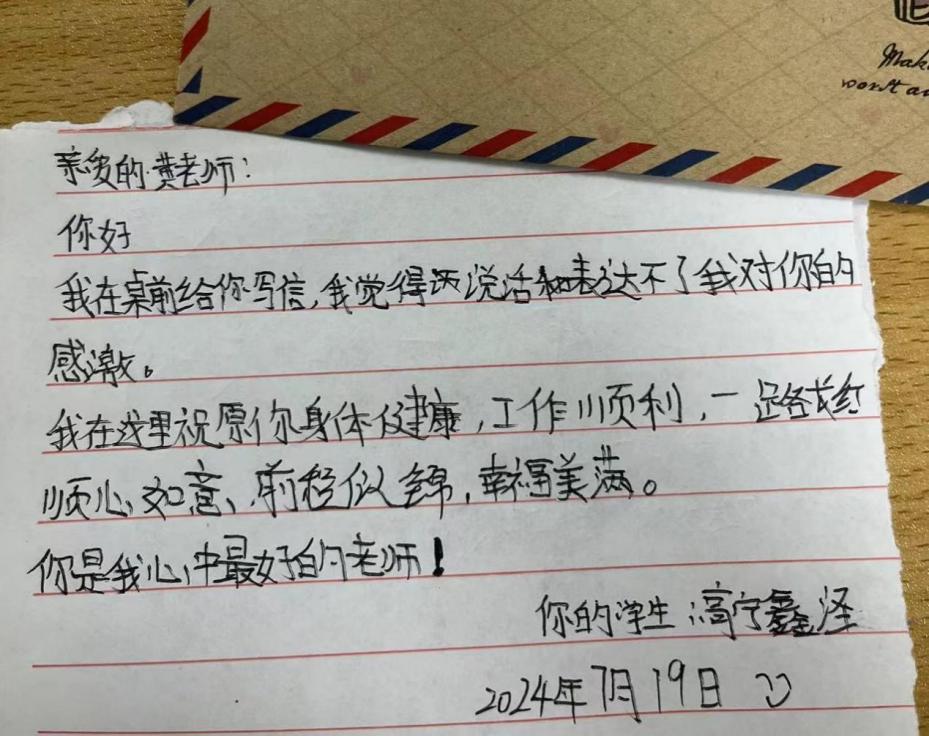 Mak
worst a
亲爱的黄老师：
你好
我在桌前给你写信，我觉得说话和表达不了我对你的
感激。
我在这里祝愿你身体健康，工作顺利，一路红
顺心、如意、前程似锦，幸福美满。
你是我心中最好的老师！
你的学生：高宁鑫泽
2024年7月19日